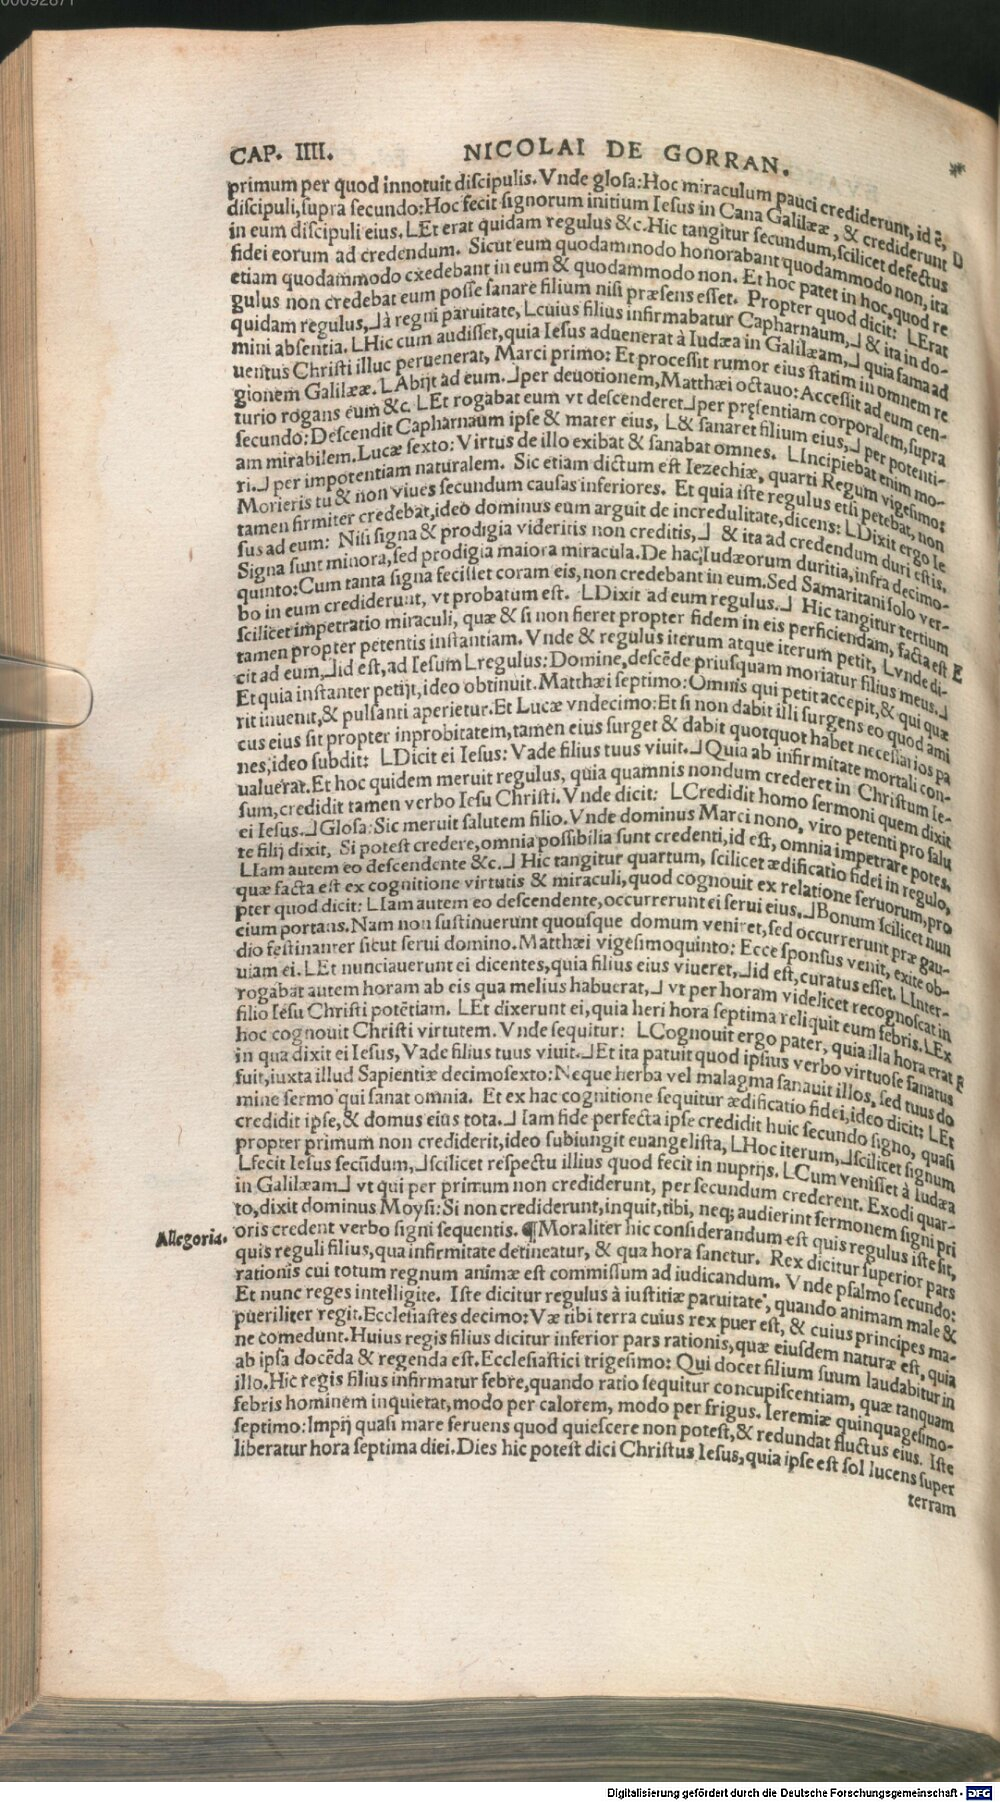 00092871
CAP. IIII. NICOLAI DE GORRAN.
primum per quod innotuit discipulis. Vnde glosa: Hoc miraculum pauci crediderunt, id ē,
discipuli, supra secundo: Hoc fecit signorum initium Iesus in Cana Galilææ, & crediderunt
in eum discipuli eius. L Et erat quidam regulus &c. Hic tangitur secundum, scilicet defectus D
fidei eorum ad credendum. Sicut eum quodammodo honorabant quodammodo non, ita
etiam quodammodo cxedebant in eum & quodammodo non. Et hoc patet in hoc, quod re
gulus non credebat eum posse sanare filium nisi præsens esset. Propter quod dicit: L Erat
quidam regulus, ⅃ à regni paruitate, L cuius filius infirmabatur Capharnaum, ⅃ & ita in do-
mini absentia. L Hic cum audisset, quia Iesus aduenerat à Iudæa in Galilæam, ⅃ quia fama ad
uentus Christi illuc peruenerat, Marci primo: Et processit rumor eius statim in omnem re
gionem Galilææ. L Abijt ad eum. ⅃ per deuotionem, Matthæi octauo: Accessit ad eum cen-
turio rogans eum &c. L Et rogabat eum vt descenderet ⅃ per pręsentiam corporalem, supra
secundo: Descendit Capharnaum ipse & mater eius, L & sanaret filium eius, ⅃ per potenti-
am mirabilem. Lucæ sexto: Virtus de illo exibat & sanabat omnes. L Incipiebat enim mo-
ri. ⅃ per impotentiam naturalem. Sic etiam dictum est Iezechiæ, quarti Regum vigesimo:
Morieris tu & non viues secundum causas inferiores. Et quia iste regulus etsi petebat, non
tamen firmiter credebat, ideo dominus eum arguit de incredulitate, dicens: L Dixit ergo Ie
sus ad eum: Nisi signa & prodigia videritis non creditis, ⅃ & ita ad credendum duri estis.
Signa sunt minora, sed prodigia maiora miracula. De hac Iudæorum duritia, infra decimo-
quinto: Cum tanta signa fecisset coram eis, non credebant in eum. Sed Samaritani solo ver-
bo in eum crediderunt, vt probatum est. L Dixit ad eum regulus. ⅃ Hic tangitur tertium
scilicet impetratio miraculi, quæ & si non fieret propter fidem in eis perficiendam, facta est E
tamen propter petentis instantiam. Vnde & regulus iterum atque iterum petit, L vnde di-
cit ad eum, ⅃ id est, ad Iesum L regulus: Domine, descēde priusquam moriatur filius meus. ⅃
Et quia instanter petijt, ideo obtinuit. Matthæi septimo: Omnis qui petit accepit, & qui quæ
rit inuenit, & pulsanti aperietur. Et Lucæ vndecimo: Et si non dabit illi surgens eo quod ami
cus eius sit propter inprobitatem, tamen eius surget & dabit quotquot habet necessarios pa
nes, ideo subdit: L Dicit ei Iesus: Vade filius tuus viuit. ⅃ Quia ab infirmitate mortali con-
ualuerat. Et hoc quidem meruit regulus, quia quamnis nondum crederet in Christum Ie-
sum, credidit tamen verbo Iesu Christi. Vnde dicit: L Credidit homo sermoni quem dixit
ei Iesus. ⅃ Glosa: Sic meruit salutem filio. Vnde dominus Marci nono, viro petenti pro salu
te filij dixit, Si potest credere, omnia possibilia sunt credenti, id est, omnia impetrare potes,
L Iam autem eo descendente &c. ⅃ Hic tangitur quartum, scilicet ædificatio fidei in regulo,
quæ facta est ex cognitione virtutis & miraculi, quod cognouit ex relatione seruorum, pro
pter quod dicit: L Iam autem eo descendente, occurrerunt ei serui eius. ⅃ Bonum scilicet nun
cium portans. Nam non sustinuerunt quousque domum veniret, sed occurrerunt præ gau-
dio festinanter sicut serui domino. Matthæi vigesimoquinto: Ecce sponsus venit, exite ob-
uiam ei. L Et nunciauerunt ei dicentes, quia filius eius viueret, ⅃ id est, curatus esset. L Inter-
rogabat autem horam ab eis qua melius habuerat, ⅃ vt per horam videlicet recognoscat in
filio Iesu Christi potētiam. L Et dixerunt ei, quia heri hora septima reliquit eum febris. L Ex
hoc cognouit Christi virtutem. Vnde sequitur: L Cognouit ergo pater, quia illa hora erat
in qua dixit ei Iesus, Vade filius tuus viuit. ⅃ Et ita patuit quod ipsius verbo virtuose sanatus F
fuit, iuxta illud Sapientiæ decimosexto: Neque herba vel malagma sanauit illos, sed tuus do
mine sermo qui sanat omnia. Et ex hac cognitione sequitur ædificatio fidei, ideo dicit: L Et
credidit ipse, & domus eius tota. ⅃ Iam fide perfecta ipse credidit huic secundo signo, quasi
propter primum non crediderit, ideo subiungit euangelista, L Hoc iterum, ⅃ scilicet signum
L fecit Iesus secūdum, ⅃ scilicet respectu illius quod fecit in nuptijs. L Cum venisset à Iudæa
in Galilæam ⅃ vt qui per primum non crediderunt, per secundum crederent. Exodi quar-
to, dixit dominus Moysi: Si non crediderunt, inquit, tibi, neq; audierint sermonem signi pri
oris credent verbo signi sequentis. ¶ Moraliter hic considerandum est quis regulus iste sit,
Allegoria.
quis reguli filius, qua infirmitate detineatur, & qua hora sanctur. Rex dicitur superior pars
rationis cui totum regnum animæ est commissum ad iudicandum. Vnde psalmo secundo:
Et nunc reges intelligite. Iste dicitur regulus à iustitiæ paruitate, quando animam male &
pueriliter regit. Ecclesiastes decimo: Væ tibi terra cuius rex puer est, & cuius principes ma-
ne comedunt. Huius regis filius dicitur inferior pars rationis, quæ eiusdem naturæ est, quia
ab ipsa docēda & regenda est. Ecclesiastici trigesimo: Qui docet filium suum laudabitur in
illo. Hic regis filius infirmatur febre, quando ratio sequitur concupiscentiam, quæ tanquam
febris hominem inquietat, modo per calorem, modo per frigus. Ieremiæ quinquagesimo-
septimo: Impij quasi mare feruens quod quiescere non potest, & redundat fluctus eius. Iste
liberatur hora septima diei. Dies hic potest dici Christus Iesus, quia ipse est sol lucens super
terram
Digitalisierung gefördert durch die Deutsche Forschungsgemeinschaft - DFG